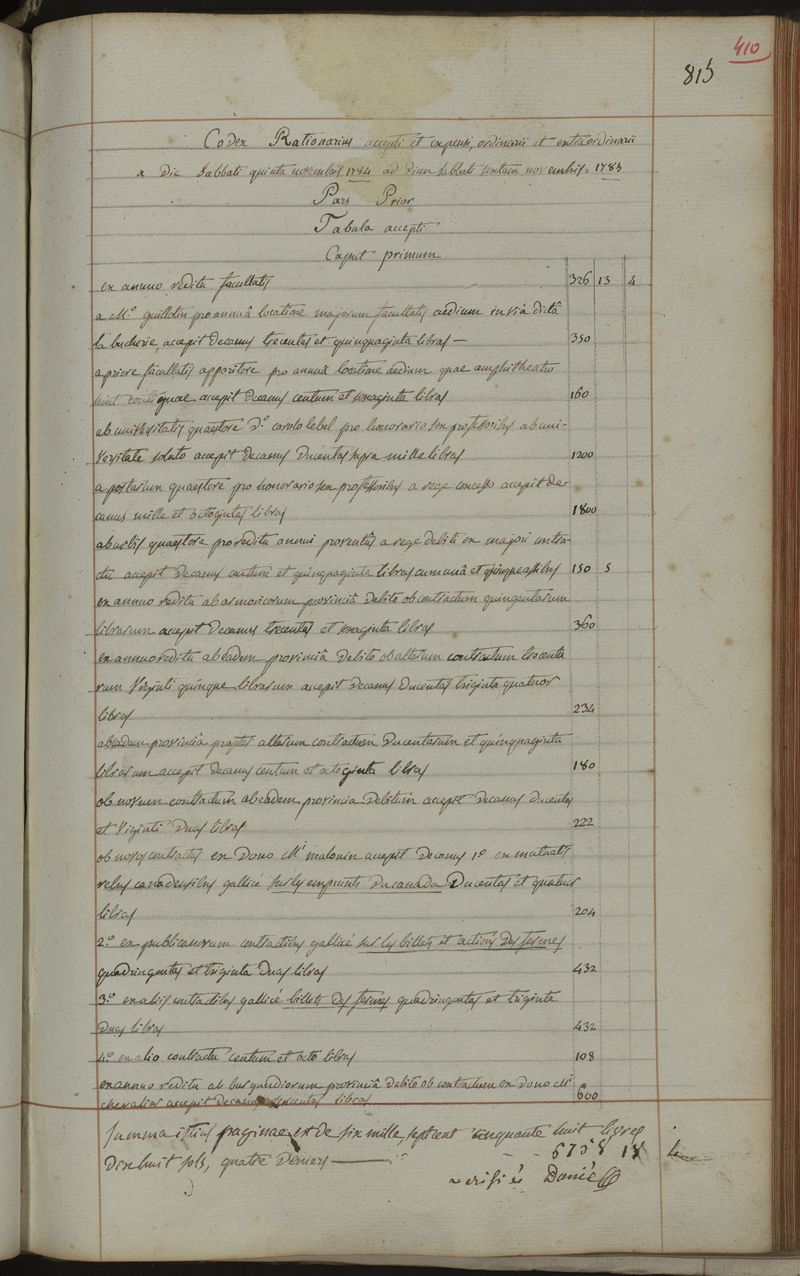 410
815
Codex Rationarius accepti et expensi, ordinarii et extraordinarii
a die sabbati quinta novembris 1784 ad diem sabbati sextam novembris 1785
Pars Prior
Tabula accepti
Caput primum
ex annuo reditu facultatis 326 13 4
a M.o guillotin pro annuâ locatione majorum facultatis aedium in viâ dictâ
la bucherie, accepit decanus trecentas et quinquaginta libras — 350
a priore facultatis apparitore pro annuâ locatione aedium quae amphitheatro
sunt contiguae accepit decanus centum et sexaginta libras 160
ab universitatis quaestore D.o carolo lebel pro honorario sex professoribus ab uni-
versitate soluto accepit decanus ducentas supra mille libras 1200
a postarum quaestore pro honorario sex professoribus a rege concesso accepit de-
canus mille et octogintas libras 1800
ab urbis quaestore pro reditu annui proventus a rege debiti ex majori contra-
ctu accepit decanus centum et quinquaginta libras cum unâ et quinque assibus 150 5
ex annuo reditu ab armoricorum provinciâ debito ob contractum quingentarum
librarum accepit decanus trecentas et sexaginta libras 360
ex annuo reditu ab eadem provinciâ debito ob alterum contractum trecenta
rum viginti quinque librarum accepit decanus ducentas triginta quatuor
libras 234
ab eadem provinciâ propter alterum contractum ducentarum et quinquaginta
librarum accepit decanus centum et octoginta libras 180
ob novum contractum ab eadem provincia debitum accepit decanus ducentas
et viginti duas libras 222
ob novos contractus ex dono M.i malouin accepit decanus 1.o ex mutuatis
rebus canadensibus gallicè sur les emprunts du canada ducentas et quatuor
libras 204
2.o ex publicanorum contractibus gallicè sur les billets et actions des fermes
quadringentas et triginta duas libras 432
3.o ex aliis contractibus gallicè billets des fermes quadringentas et triginta
duas libras 432
4.o ex alio contractu centum et octo libras 108
ex annuo reditu ab burgundiorum provinciâ debito ob contractum ex dono M.i
chevalier accepit decanus sexcentas libras 600
summa istius paginae est de six mille, sept cent cinquante huit livres
dix huit sols, quatre deniers — 6758 18 4
verifiés Danié